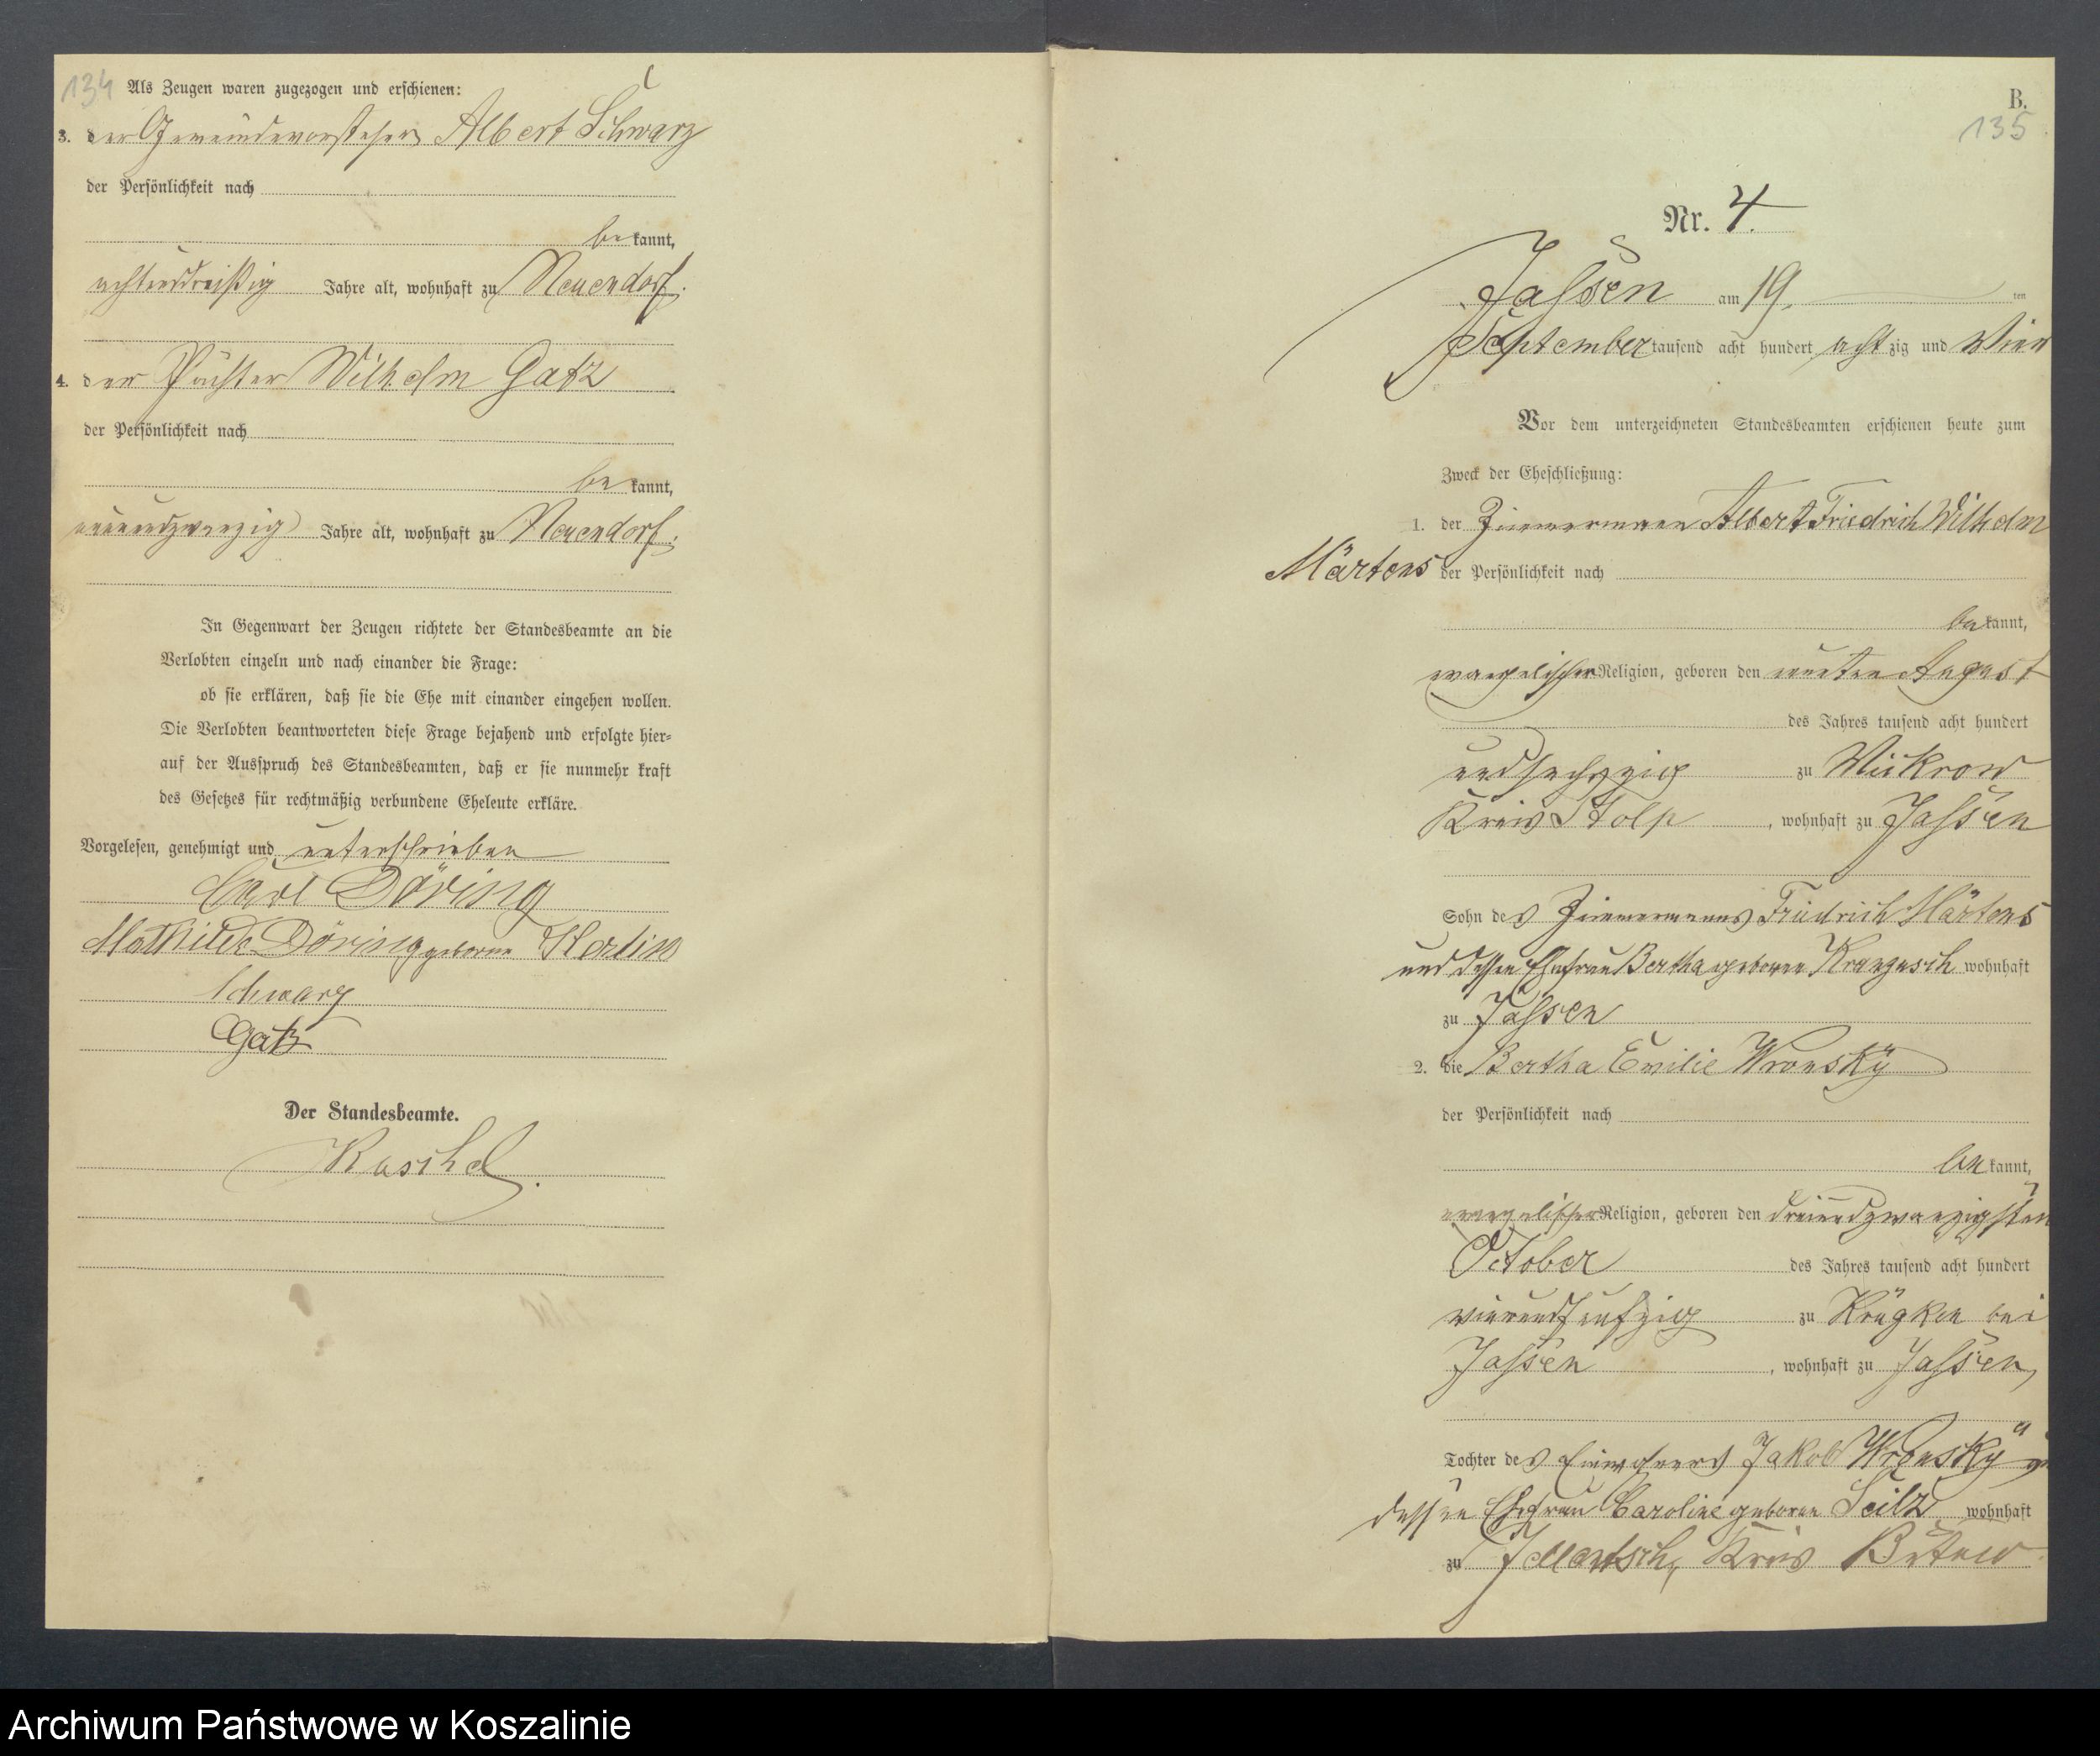 134 Als Zeugen waren zugezogen und erschienen:
3. der Gemeindevorsteher Albert Schwarz
der Persönlichkeit nach
be kannt,
achtunddreißig Jahre alt, wohnhaft zu Neuendorf.
4. der Pächter Wilhelm Gatz
der Persönlichkeit nach
be kannt,
neunundzwanzig Jahre alt, wohnhaft zu Neuendorf.
In Gegenwart der Zeugen richtete der Standesbeamte an die
Verlobten einzeln und nach einander die Frage:
ob sie erklären, daß sie die Ehe mit einander eingehen wollen.
Die Verlobten beantworteten diese Frage bejahend und erfolgte hier-
auf der Ausspruch des Standesbeamten, daß er sie nunmehr kraft
des Gesetzes für rechtmäßig verbundene Eheleute erkläre.
Vorgelesen, genehmigt und unterschrieben
Carl Döring
Mathilde Döring geborne
Schwarz
Gatz
Der Standesbeamte.
Raschel.
B.
135
Nr. 4.
Jassen am 19. ten
September tausend acht hundert achtzig und Vier
Vor dem unterzeichneten Standesbeamten erschienen heute zum
Zweck der Eheschließung:
1. der Zimmermann Albert Friedrich Wilhelm
Märtens der Persönlichkeit nach
be kannt,
evangelischer Religion, geboren den August
des Jahres tausend acht hundert
undsechzig zu Mickrow
Kreis Stolp, wohnhaft zu Jassen
Sohn des Zimmermanns Friedrich Märtens
und dessen Ehefrau Bertha geboren wohnhaft
zu Jassen
2. die Bertha Emilie Wronsky
der Persönlichkeit nach
be kannt,
evangelischer Religion, geboren den dreiundzwanzigsten
October des Jahres tausend acht hundert
vierundfünfzig zu bei
Jassen, wohnhaft zu Jassen,
Tochter des Einwohners Jakob Wronsky
dessen Ehefrau Caroline geboren wohnhaft
zu Jellentsch, Kreis Bütow
Archiwum Państwowe w Koszalinie